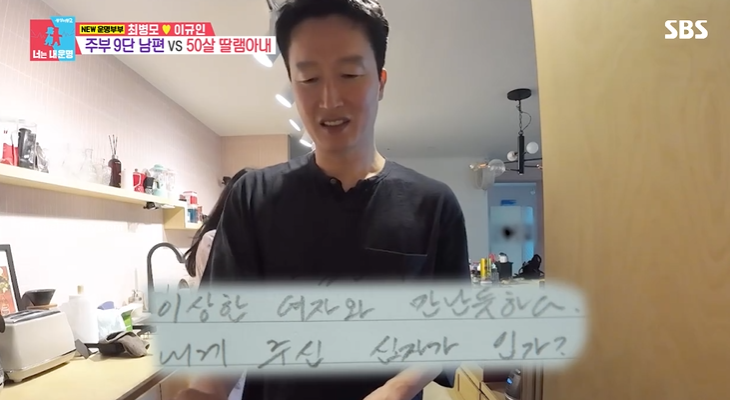 NEW 운명부부 최병모 ♥ 이규인
주부 9단 남편 VS 50살 딸램아내
너는 내 운명
SBS
이상한 여자와 만난듯하다.
내게 주신 십자가 인가?